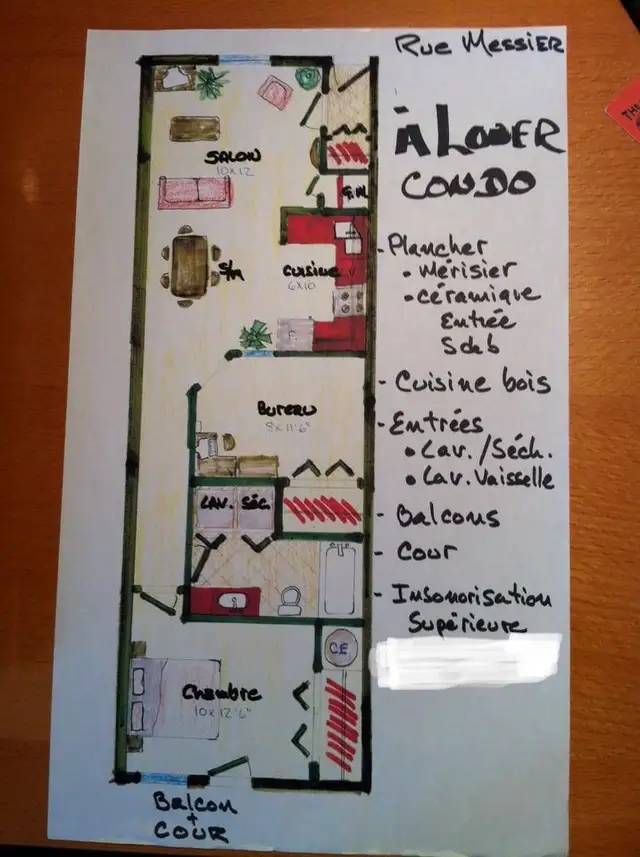 Rue Messier
À Louer
Condo
- Plancher
• Mérisier
• céramique
Entrée
Sdb
- Cuisine bois
- Entrées
• Lav./Séch.
• Lav. Vaisselle
- Balcons
- Cour
- Insonorisation
Supérieure
Salon
10x12
G.M
S/M
Cuisine
6x10
Bureau
8x11'6"
Lav. Séc.
CE
Chambre
10x12'6"
Balcon
+
Cour